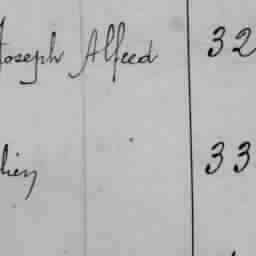 Joseph Alfred 32
33